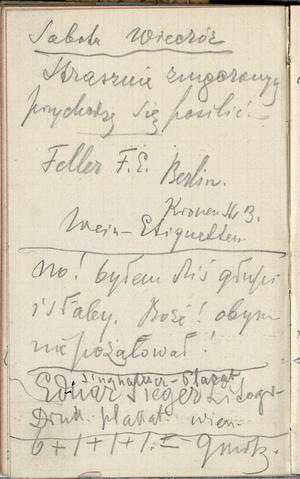 Sobota Wieczór
Strasznie zmęczony
przychodzę się posilić.
Feller F. E. Berlin.
Kronenstr 3.
Wein-Etiquetten.
No! byłem dziś głupi
i słaby. Boże! obym
nie pożałował!
Singhalesen-Plakat
Eduar Sieger Litogr-
Druk. plakat. wien.
6+1+1+1. =